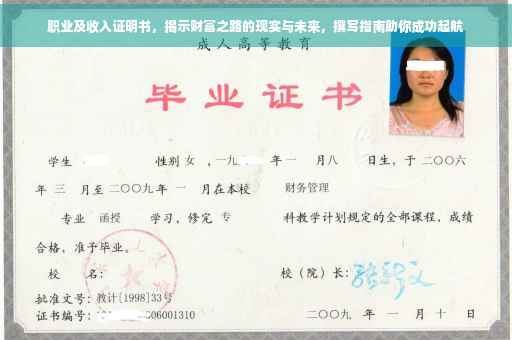 职业及收入证明书，揭示财富之路的现实与未来，撰写指南助你成功起航
成人高等教育
毕业证书
学生 性别 女 ，一九 年一 月八 日生，于 二〇〇六
年 三 月至 二〇〇九 年 一 月在本校 财务管理
专业 函授 学习，修完 专 科教学计划规定的全部课程，成绩
合格，准予毕业。
校 名： 校（院）长：
批准文号：教计[1998]33号
证书编号： 606001310 二〇〇九 年 一 月 十 日